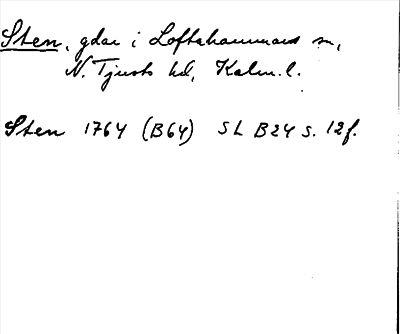 Sten, gdar i Loftahammars sn,
N. Tjusts hd, Kalm. l.
Sten 1764 (B64) SL B24 s. 12f.